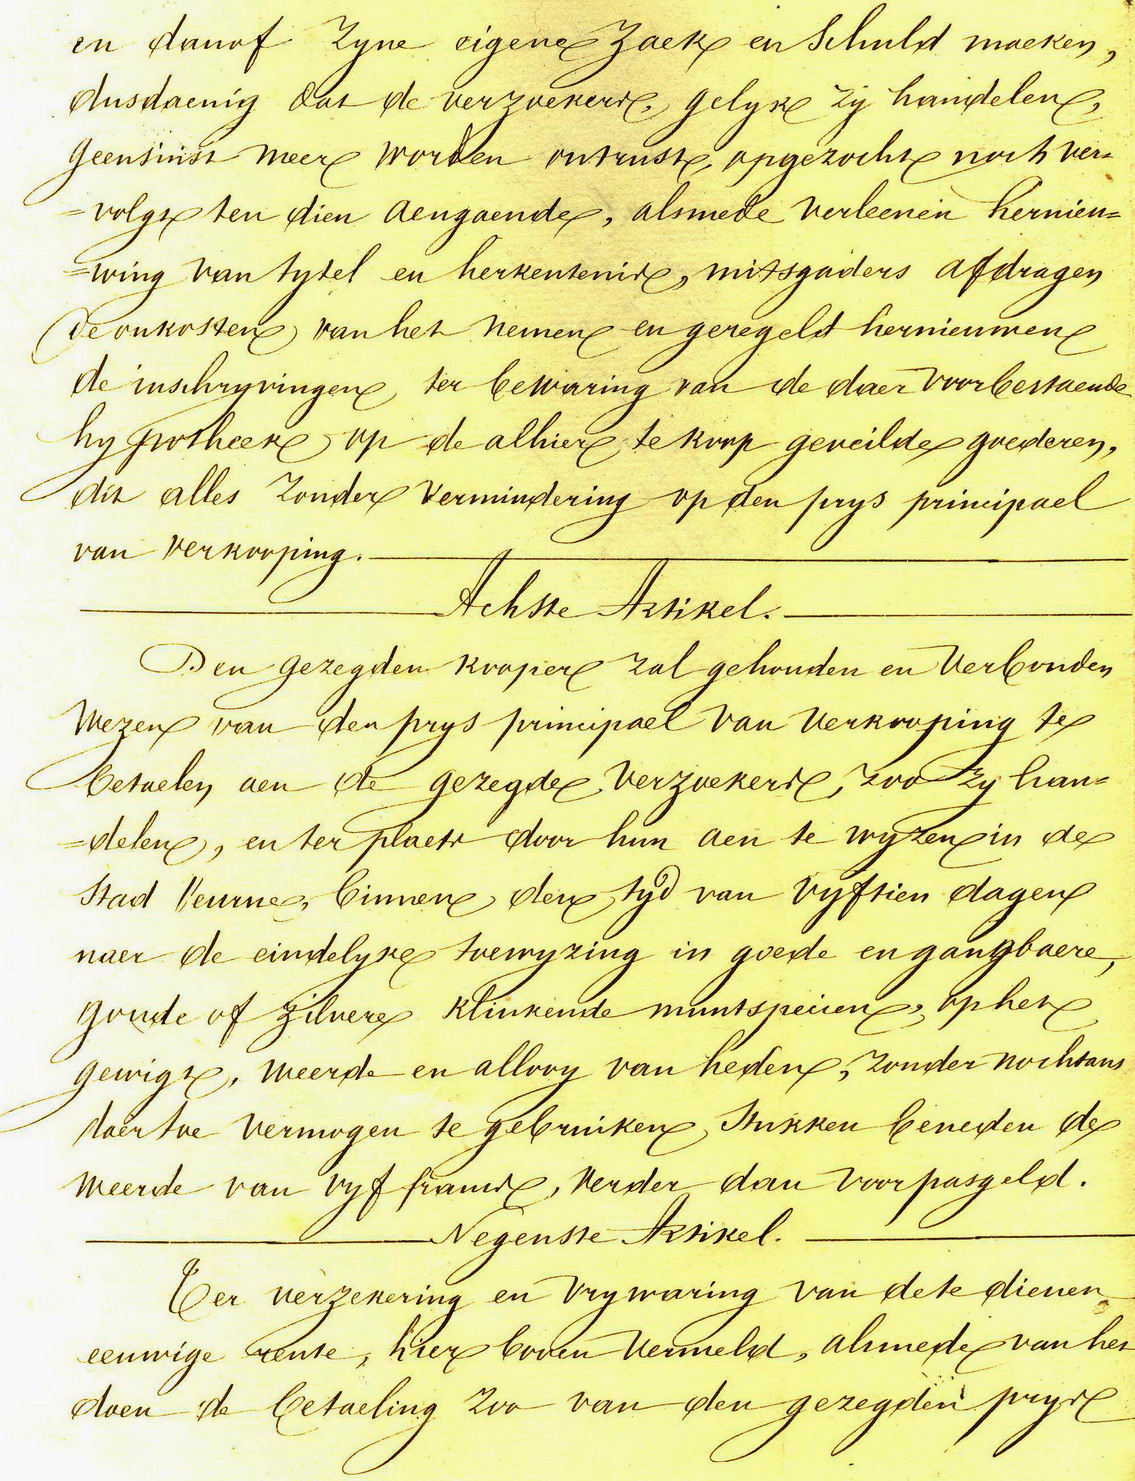 en danof zyne eigene zaek en schuld maeken,
dusdaenig dat de verzoekers, gelyk zy handelen,
geensints meer worden ontrust, opgezocht noch ver-
=volgt ten dien aengaende, alsmede verleenen hernieu=
=wing van tytel en herkentenis, mitsgaders afdragen
de onkosten van het nemen en geregeld hernieuwen
de inschryvingen ter bewaring van de daer voorbestaende
hypotheek op de alhier te koop geveilde goederen,
dit alles zonder vermindering op den prys principael
van verkooping.
Achste Artikel.
Den gezegden kooper zal gehouden en verbonden
wezen van den prys principael van verkooping te
betaelen aen de gezegde verzoekers, zoo zy han=
=delen, en ter plaets door hun aen te wyzen in de
stad Veurne, binnen den tyd van vyftien dagen
naer de eindelyke toewyzing in goede en gangbaere,
goude of zilvere klinkende muntspecien, op het
gewigt, weerde en allooy van heden, zonder nochtans
daertoe vermogen te gebruiken stukken beneden de
weerde van vyf francs, verder dan voor pasgeld.
Negenste Artikel.
Ter verzekering en vrywaring van de te dienen
eeuwige rente, hier boven vermeld, alsmede van het
doen de betaeling zoo van den gezegden prys